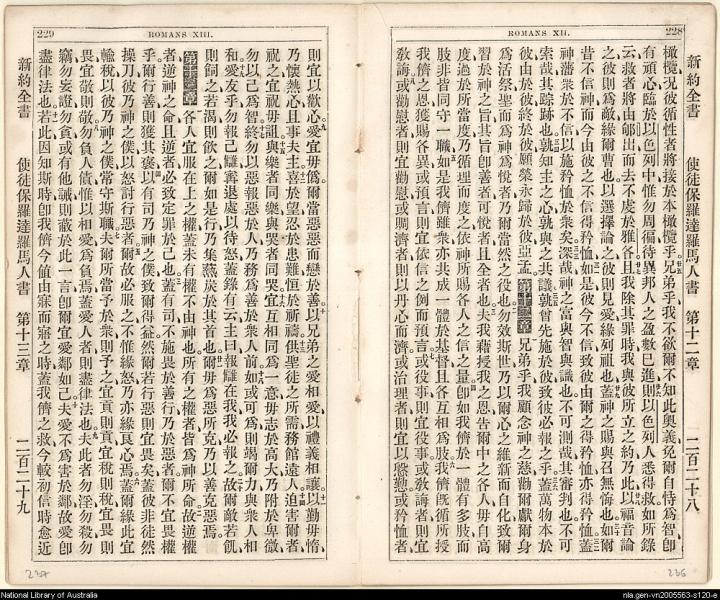 228
ROMANS XII.
新約全書 使徒保羅達羅馬人書 第十二章 二百二十八
橄欖况彼循性者將接於本橄欖乎兄弟乎我不欲爾不知此奧義免爾自恃爲智卽
有頑心臨於以色列中惟勿周徧待異邦人之盈數已進則以色列人悉得救如所錄
云救者將由郇出而去不虔於雅各且我除其罪時我與彼所立之約乃此以福音論
之彼則爲敵緣爾曹也以選擇論之彼則見愛緣列祖也蓋神之賜與召無悔也如爾
昔不信神而今由彼之不信得矜恤如是彼今不信致彼由爾之得矜恤亦得矜恤蓋
神濟衆於不信以施矜恤於衆矣深哉神之富與智與識也不可測哉其審判也不可
索哉其踪跡也孰知主之心孰與之共議孰曾先施於彼致彼必報之乎蓋萬物本於
彼由於彼終於彼願榮永歸於彼亞孟第十二章兄弟乎我顧念神之慈勸爾獻爾身
爲活祭聖而爲神爲悅者乃爾當然之役也勿效斯世乃以爾心之維新而自化致爾
習於神之旨其旨卽善者可悅者且全者也夫我藉授我之恩告爾中之各人毋自高
度過於所當度乃循理而度之依神所賜各人之信之量卽如我儕於一體有多肢而
肢非皆同守一職如是我儕雖衆亦共成一體於基督且各互相爲肢我儕旣循所授
我儕之恩獲賜各異或預言則宜依信之例而預言或役事則宜役事或敎誨者則宜
敎誨或勸慰者則宜勸慰或賙濟者則以丹心而濟或治理者則宜以慇懃或矜恤者
236
229
ROMANS XIII.
則宜以歡心愛宜毋僞爾當惡惡而戀於善以兄弟之愛相愛以禮義相讓以勤毋惰
乃懷熱心且事夫主喜於望忍於患難恒於祈禱供聖徒之所需務館遠人迫害爾者
祝之宜祝毋詛與樂者同樂與哭者同哭宜互相同爲一意毋志於高大乃附於卑微
勿以己爲智終勿以惡報惡於人乃務爲善於衆人前如或可爲則竭爾力與衆人相
和愛友乎勿報己讎甯退處以待怒蓋錄有云主曰報讎在我我必報之故爾敵若飢
則飼之若渴則飮之爾如是行乃集燕炭於其首也爾毋爲惡所克乃以善克惡焉
第十三章各人宜服在上之權蓋未有權不由神也所有之權者皆爲神所命故逆權
者逆神之命且逆者必致定罪於己也蓋有司不施畏於善行乃於惡者爾不宜畏權
乎爾行善則獲其褒以有司乃神之僕致爾得益然爾若行惡則宜畏矣蓋彼非徒然
操刀彼乃神之僕以怒討行惡者爾故必服之不惟緣怒乃亦緣良心焉蓋爾緣此宜
輸稅以彼乃神之僕常守斯職夫爾所當予於衆則予之宜貢則貢宜稅則稅宜畏則
畏宜敬則敬勿負人債惟以相愛爲負焉蓋愛人者則盡律法也夫此者勿淫勿殺勿
竊勿妄證勿貪或有他誡則蔽於此一言卽爾宜愛鄰如己夫愛不爲害於鄰故愛卽
盡律法也若此因知斯時卽我儕今値由寐而寤之時蓋我儕之救今較初信時愈近
新約全書 使徒保羅達羅馬人書 第十三章 二百二十九
237
National Library of Australia
nla.gen-vn2005563-s120-e